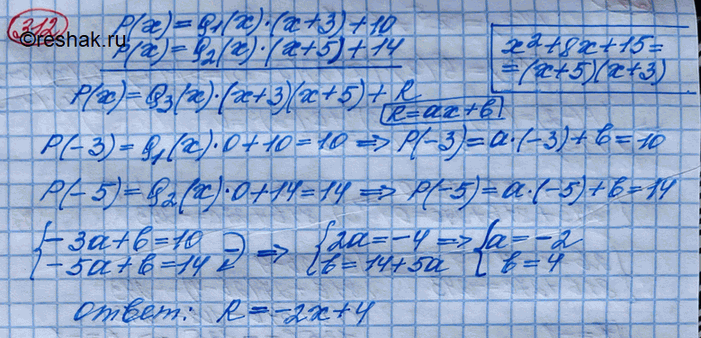 312
©reshak.ru
P(x) = Q₁(x)·(x+3)+10
P(x) = Q₂(x)·(x+5)+14
x²+8x+15=
=(x+5)(x+3)
P(x) = Q₃(x)·(x+3)(x+5)+R
R=ax+b
P(-3) = Q₁(x)·0+10=10 ⇒ P(-3)=a·(-3)+b=10
P(-5) = Q₂(x)·0+14=14 ⇒ P(-5)=a·(-5)+b=14
{-3a+b=10 ⇒ {2a=-4 ⇒ {a=-2
{-5a+b=14 {b=14+5a {b=4
ответ: R=-2x+4